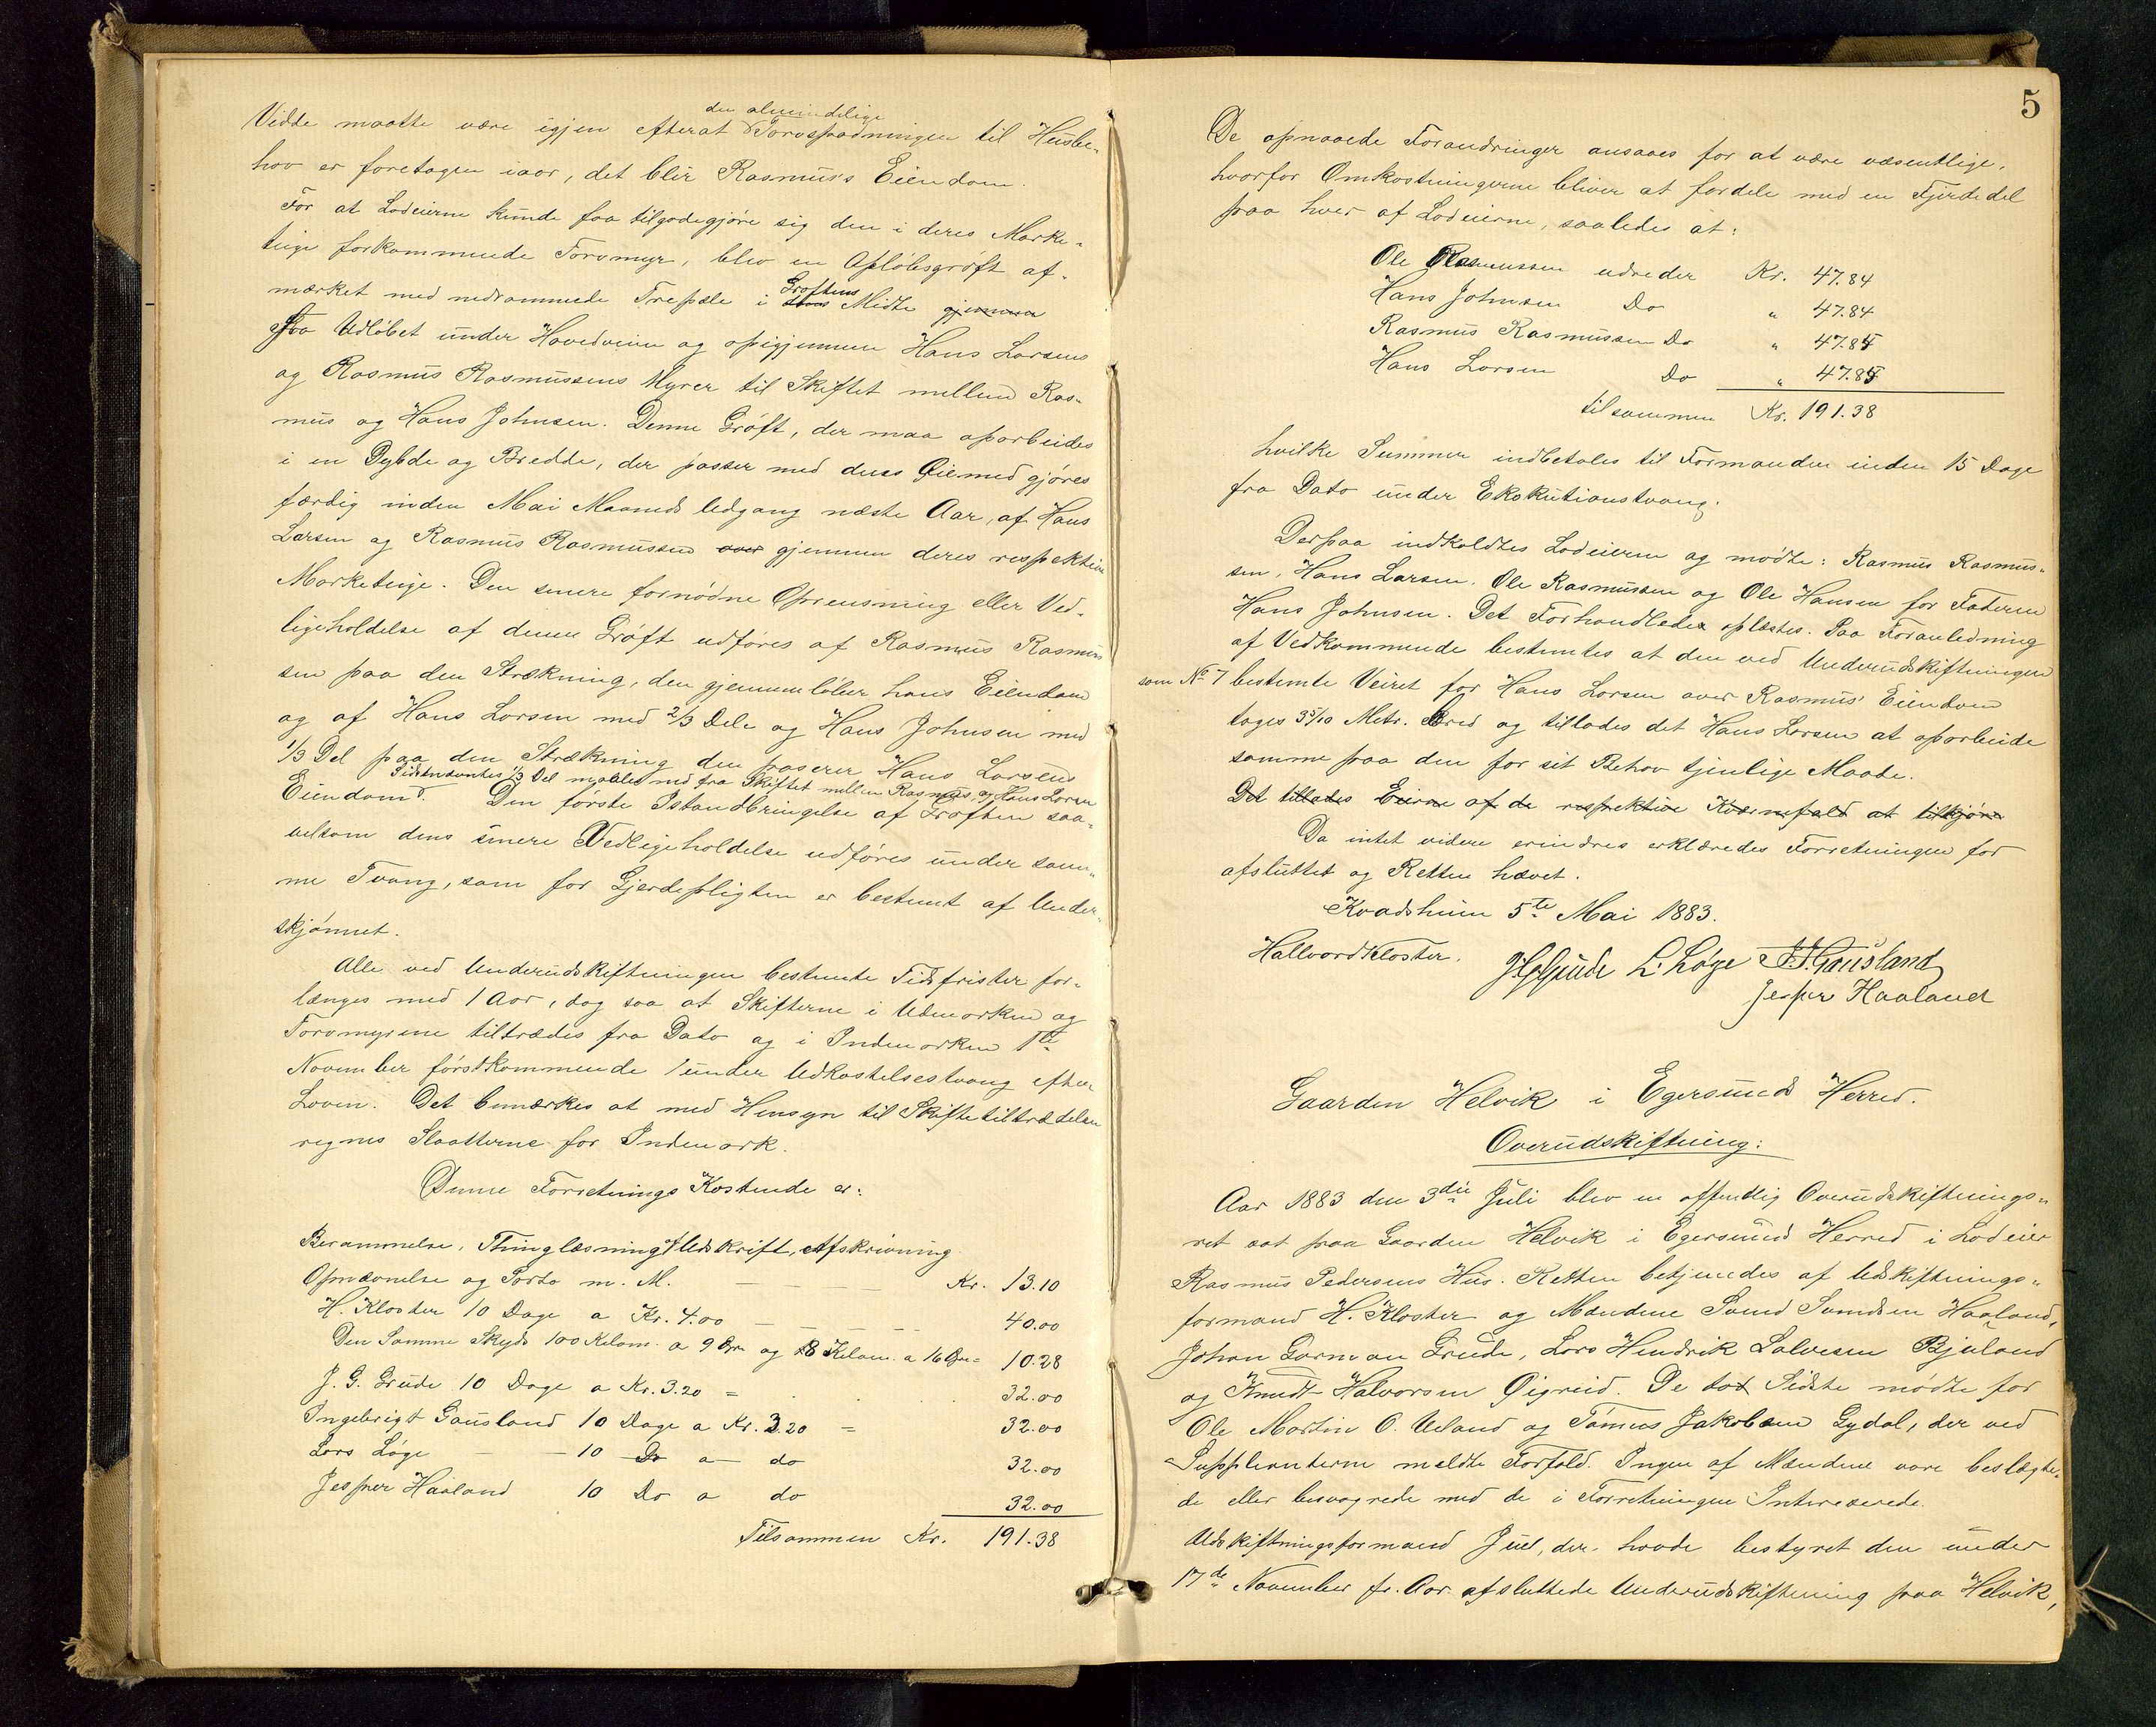 Vidde maatte være igjen efterat den almindelige Torvspadningen til Husbe-
hov er foretagen iaar, det blir Rasmus's Eiendom.
For at Lodeierne kunde faa tilgodegjøre sig den i deres Marke-
teige forkommende Torvmyr, blev en Afløbsgrøft af-
mærket med nedrammede Trepæle i Grøftens Midte gjennem
fra Udløbet under Hovedveien og opigjennem Hans Larsens
og Rasmus Rasmussens Myrer til Skiftet mellem Ras-
mus og Hans Johnsen. Denne Grøft, der maa oparbeides
i en Dybde og Bredde, der passer med dens Øiemed gjøres
færdig inden Mai Maaneds Udgang næste Aar, af Hans
Larsen og Rasmus Rasmussen over gjennem deres respektive
Marketeige. Den senere fornødne Oprensning eller Ved-
ligeholdelse af denne Grøft udføres af Rasmus Rasmus
sen paa den Strækning, den gjennemløber hans Eiendom
og af Hans Larsen med 2/3 Dele og Hans Johnsen med
1/3 Del paa den Strækning den paserer Hans Larsens
Sidstnævntes 1/3 Del maales ned fra Skiftet mellem Rasmus og Hans Larsen
Eiendom. Den første Istandbringelse af Grøften saa-
velsom dens senere Vedligeholdelse udføres under sam-
me Tvang, som for Gjerdepligten er bestemt af Under-
skjønnet.
Alle ved Underudskiftningen bestemte Tidsfrister for-
længes med 1 Aar, dog saa at Skifterne i Udmarken og
Torvmyrene tiltrædes fra Dato og i Indmarken 1ste
November førstkommende under Udkastelsestvang efter
Loven. Det bemærkes at med Hensyn til Skiftetiltrædelsen
regnes Slaatterne for Indmark.
Denne Forretnings Kostende er:
Berammelse, Thinglæsning, Udskrift, Afskrivning
Opnævnelse og Porto m. M. Kr. 13.10
H. Kloster 10 Dage a Kr. 4.00 40.00
Den Samme Skyds 100 Kilom. a 9 Øre og 8 Kilom. a 16 Øre = 10.28
J. G. Grude 10 Dage a Kr. 3.20 = 32.00
Ingebrigt Gausland 10 Dage a Kr. 3.20 = 32.00
Lars Løge 10 Do a do 32.00
Jesper Haaland 10 Do a do 32.00
Tilsammen Kr. 191.38
5
De opnaaede Forandringer ansaaes for at være væsentlige,
hvorfor Omkostningerne bliver at fordele med en Fjerdedel
paa hver af Lodeierne, saaledes at:
Ole Rasmussen udreder Kr. 47.84
Hans Johnsen Do " 47.84
Rasmus Rasmussen Do " 47.85
Hans Larsen Do " 47.85
tilsammen Kr. 191.38
hvilke Summer indbetales til Formanden inden 15 Dage
fra Dato under Eksekutionstvang.
Derpaa indkaldtes Lodeierne og mødte: Rasmus Rasmus-
sen, Hans Larsen, Ole Rasmussen og Ole Hansen for Faderen
Hans Johnsen. Det Forhandlede oplæstes. Paa Foranledning
af Vedkommende bestemtes at den ved Underudskiftningen
som No 7 bestemte Veiret for Hans Larsen over Rasmus' Eiendom
tages 3 5/10 Metr. Bred og tillades det Hans Larsen at oparbeide
samme paa den for sit Behov tjenlige Maade.
Det tillades Eierne af de respektive Kværnefald at tilkjøre
Da intet videre erindres erklæredes Forretningen for
afsluttet og Retten hævet.
Kvadsheim 5te Mai 1883.
Hallvard Kloster. J. G. Grude L. Løge I. T. Gausland
Jesper Haaland
Gaarden Helvik i Egersunds Herred.
Overudskiftning:
Aar 1883 den 3die Juli blev en offentlig Overudskiftnings-
ret sat paa Gaarden Helvik i Egersund Herred i Lodeier
Rasmus Pedersens Hus. Retten betjentes af Udskiftnings-
formand H. Kloster og Mændene Svend Svendsen Haaland,
Johan Garman Grude, Lars Hendrik Salvesen Bjuland
og Knudt Halvorsen Øigreid. De to Sidste mødte for
Ole Martin O. Ueland og Tønnes Jakobsen Gydal, der ved
Supplenterne meldte Forfald. Ingen af Mændene vare beslægte-
de eller besvogrede med de i Forretningen Interesserede.
Udskiftningsformand Juel, der havde bestyret den under
17de November f. Aar afsluttede Underudskiftning paa Helvik,